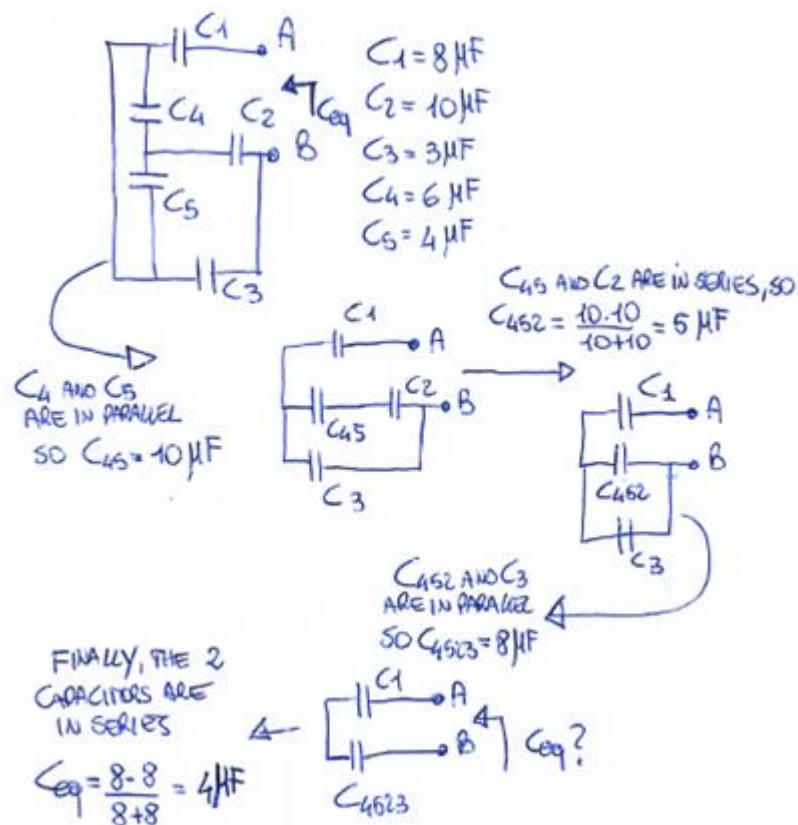 C1
A
C4
C2
Ceq
B
C5
C3
C1 = 8 μF
C2 = 10 μF
C3 = 3 μF
C4 = 6 μF
C5 = 4 μF
C4 AND C5
ARE IN PARALLEL
SO C45 = 10 μF
C1
A
C2
B
C45
C3
C45 AND C2 ARE IN SERIES, SO
C452 = 10·10 / 10+10 = 5 μF
C1
A
B
C452
C3
C452 AND C3
ARE IN PARALLEL
SO C4523 = 8 μF
C1
A
B
Ceq?
C4523
FINALLY, THE 2
CAPACITORS ARE
IN SERIES
Ceq = 8·8 / 8+8 = 4 μF